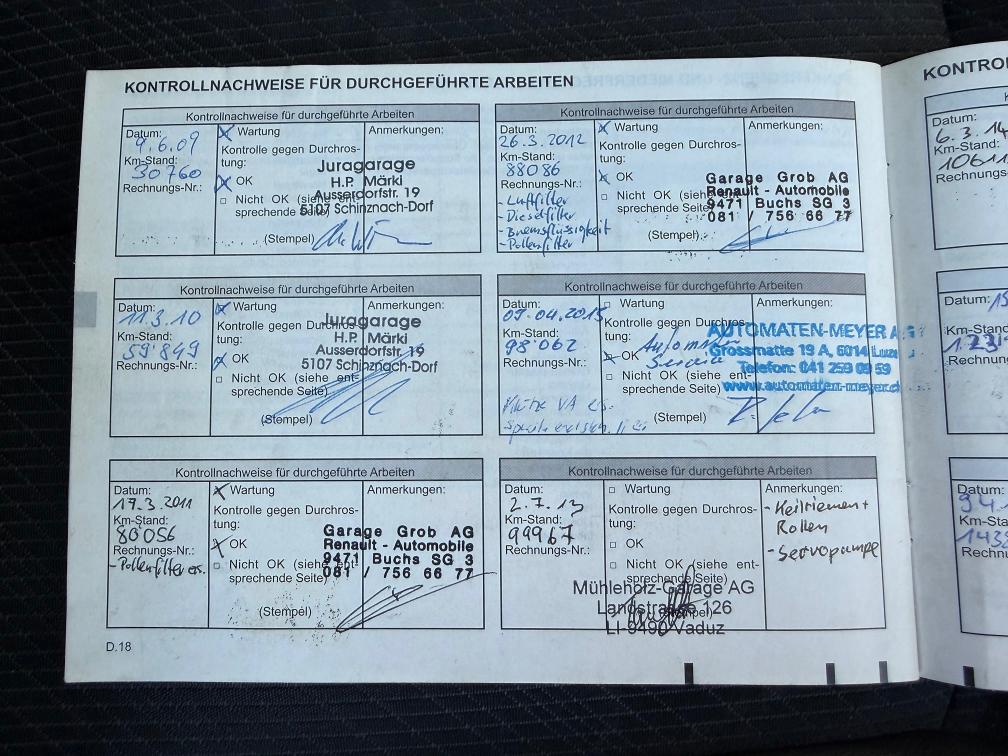 KONTROLLNACHWEISE FÜR DURCHGEFÜHRTE ARBEITEN
Kontrollnachweise für durchgeführte Arbeiten
Datum:
9.6.09
Km-Stand:
30760
Rechnungs-Nr.:
Wartung
Kontrolle gegen Durchros-
tung:
OK
Nicht OK (siehe ent-
sprechende Seite)
(Stempel)
Anmerkungen:
Juragarage
H.P. Märki
Ausserdorfstr. 19
5107 Schinznach-Dorf
Kontrollnachweise für durchgeführte Arbeiten
Datum:
11.3.10
Km-Stand:
59'849
Rechnungs-Nr.:
Wartung
Kontrolle gegen Durchros-
tung:
OK
Nicht OK (siehe ent-
sprechende Seite)
(Stempel)
Anmerkungen:
Juragarage
H.P. Märki
Ausserdorfstr. 19
5107 Schinznach-Dorf
Kontrollnachweise für durchgeführte Arbeiten
Datum:
17.3.2011
Km-Stand:
80'056
Rechnungs-Nr.:
- Pollenfilter ers.
Wartung
Kontrolle gegen Durchros-
tung:
OK
Nicht OK (siehe ent-
sprechende Seite)
(Stempel)
Anmerkungen:
Garage Grob AG
Renault - Automobile
9471 Buchs SG 3
081 / 756 66 77
D.18
Kontrollnachweise für durchgeführte Arbeiten
Datum:
26.3.2012
Km-Stand:
88086
Rechnungs-Nr.:
- Luftfilter
- Dieselfilter
- Bremsflüssigkeit
- Pollenfilter
Wartung
Kontrolle gegen Durchros-
tung:
OK
Nicht OK (siehe ent-
sprechende Seite)
(Stempel)
Anmerkungen:
Garage Grob AG
Renault - Automobile
9471 Buchs SG 3
081 / 756 66 77
Kontrollnachweise für durchgeführte Arbeiten
Datum:
Km-Stand:
98'062
Rechnungs-Nr.:
Wartung
Kontrolle gegen Durchros-
OK
Nicht OK (siehe ent-
sprechende Seite)
(Stempel)
Anmerkungen:
AUTOMATEN-MEYER
Grossmatte 19 A, 6014
Telefon: 041 259 09 59
www.automaten-meyer.c
Kontrollnachweise für durchgeführte Arbeiten
Datum:
2.7.13
Km-Stand:
99967
Rechnungs-Nr.:
Wartung
Kontrolle gegen Durchros-
tung:
OK
Nicht OK (siehe ent-
sprechende Seite)
(Stempel)
Anmerkungen:
- Keilriemen +
Rollen
- Servopumpe
Mühleholz-Garage AG
Landstrasse 126
LI-9490 Vaduz
KONTRO
Datum:
6.3.14
Km-Stand:
Rechnungs
Datum:
Km-Stand
Rechnung
Datum:
Km-Sta
Rechnu